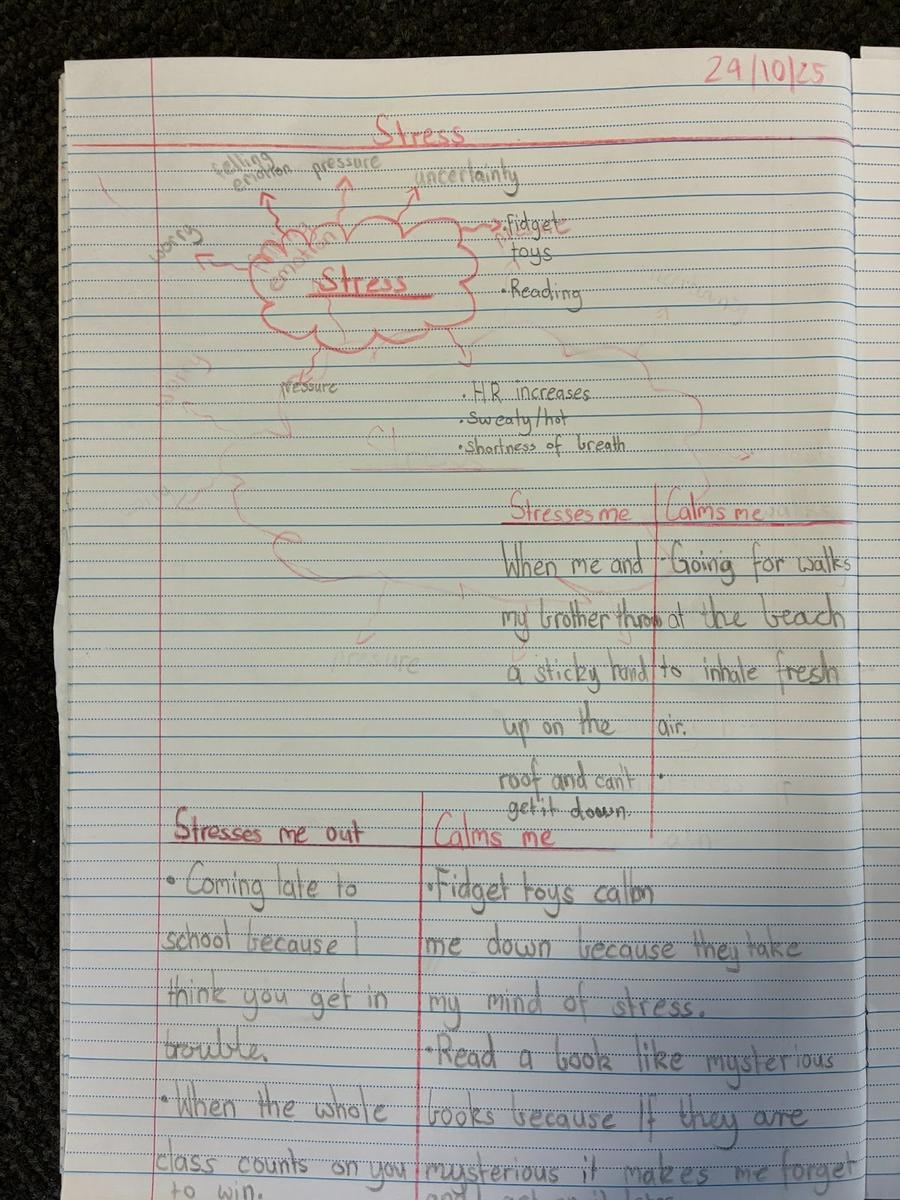 29/10/25
Stress
felling
emotion
pressure
uncertainty
worry
• Fidget
toys
• Reading
emotion
Stress
pressure
• H.R increases
• Sweaty/hot
• Shortness of breath
Stresses me
When me and
my brother throw
a sticky hand
up on the
roof and can't
get it down.
Calms me
• Going for walks
at the beach
to inhale fresh
air.
•
Stresses me out
• Coming late to
school because I
think you get in
trouble.
• When the whole
class counts on you
to win.
Calms me
• Fidget toys calm
me down because they take
my mind of stress.
• Read a book like mysterious
books because If they are
mysterious it makes me forget